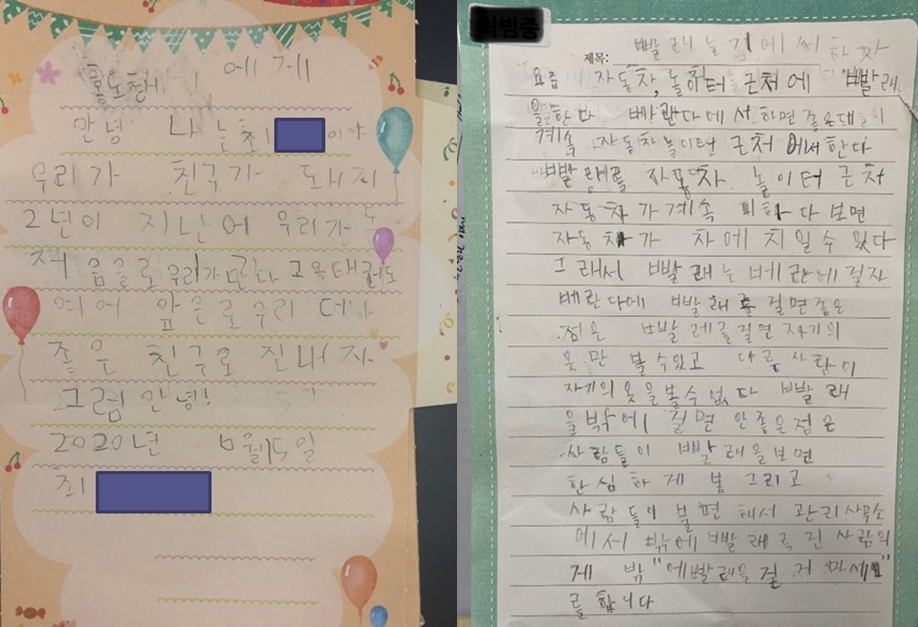 에게
안녕 나는 최 이야
우리가 친구가 되지
2년이 지난에 우리가
처음으로 우리가
앞으로 우리 더
좋은 친구로 진내자
그럼 안녕!
2020년 6월 5일
최
빨래는 집에서 하자
제목:
요즘 자동차, 놀이터 근처에 빨래
을한다 베란다에서 하면 좋은대
계속 자동차 놀이턴 근처에서한다
빨래를 자동차 놀이터 근처
자동차가 계속 피하다보면
자동차가 차에 치일수 있다
그래서 빨래는 베란에걸자
베란다에 빨래를 걸면좋은
점은 빨레를걸면 자기의
옷만 볼수있고 다른사람이
자기의옷을볼수없다 빨래
을밖에 걸면 안좋은점은
사람들이 빨래을보면
한심하게 봄 그리고
사람들이 불편해서 관리사무소
에서 밖에빨래를 건 사람의
게 밖"에빨래을걸지 마세요"
를 합니다